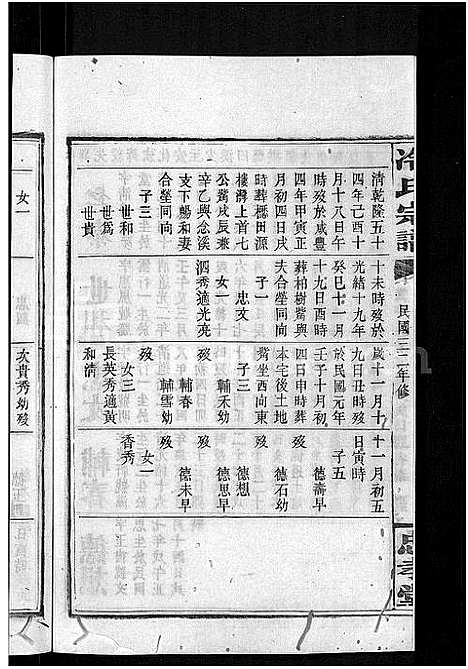 冷氏宗譜
民國三二年修
忠孝堂
清乾隆五十
四年己酉十
月十八日午
時歿於咸豐
四年甲寅正
月初四日戌
時葬樞田源
樓灣上首七
公嘴戌辰兼
辛乙與念溪
支下鶴和妻
合塋同向
子三
世和
世爲
世貴
十未時歿於
光緒十九年
癸巳十一月
十九日酉時
葬柏樹嘴與
夫合塋同向
子一
忠文
女一
泗秀適光亮
歲十一月十
九日丑時歿
於民國元年
壬子十月初
四日申時葬
本宅後土地
嘴坐西向東
子三
輔禾幼
歿
輔春
輔雪幼
歿
女三
長英秀適黃
和清
十一月初五
日寅時
子五
德壽早
歿
德石幼
歿
德想
德思早
歿
德未早
歿
女一
香秀
女一
女貴秀幼歿